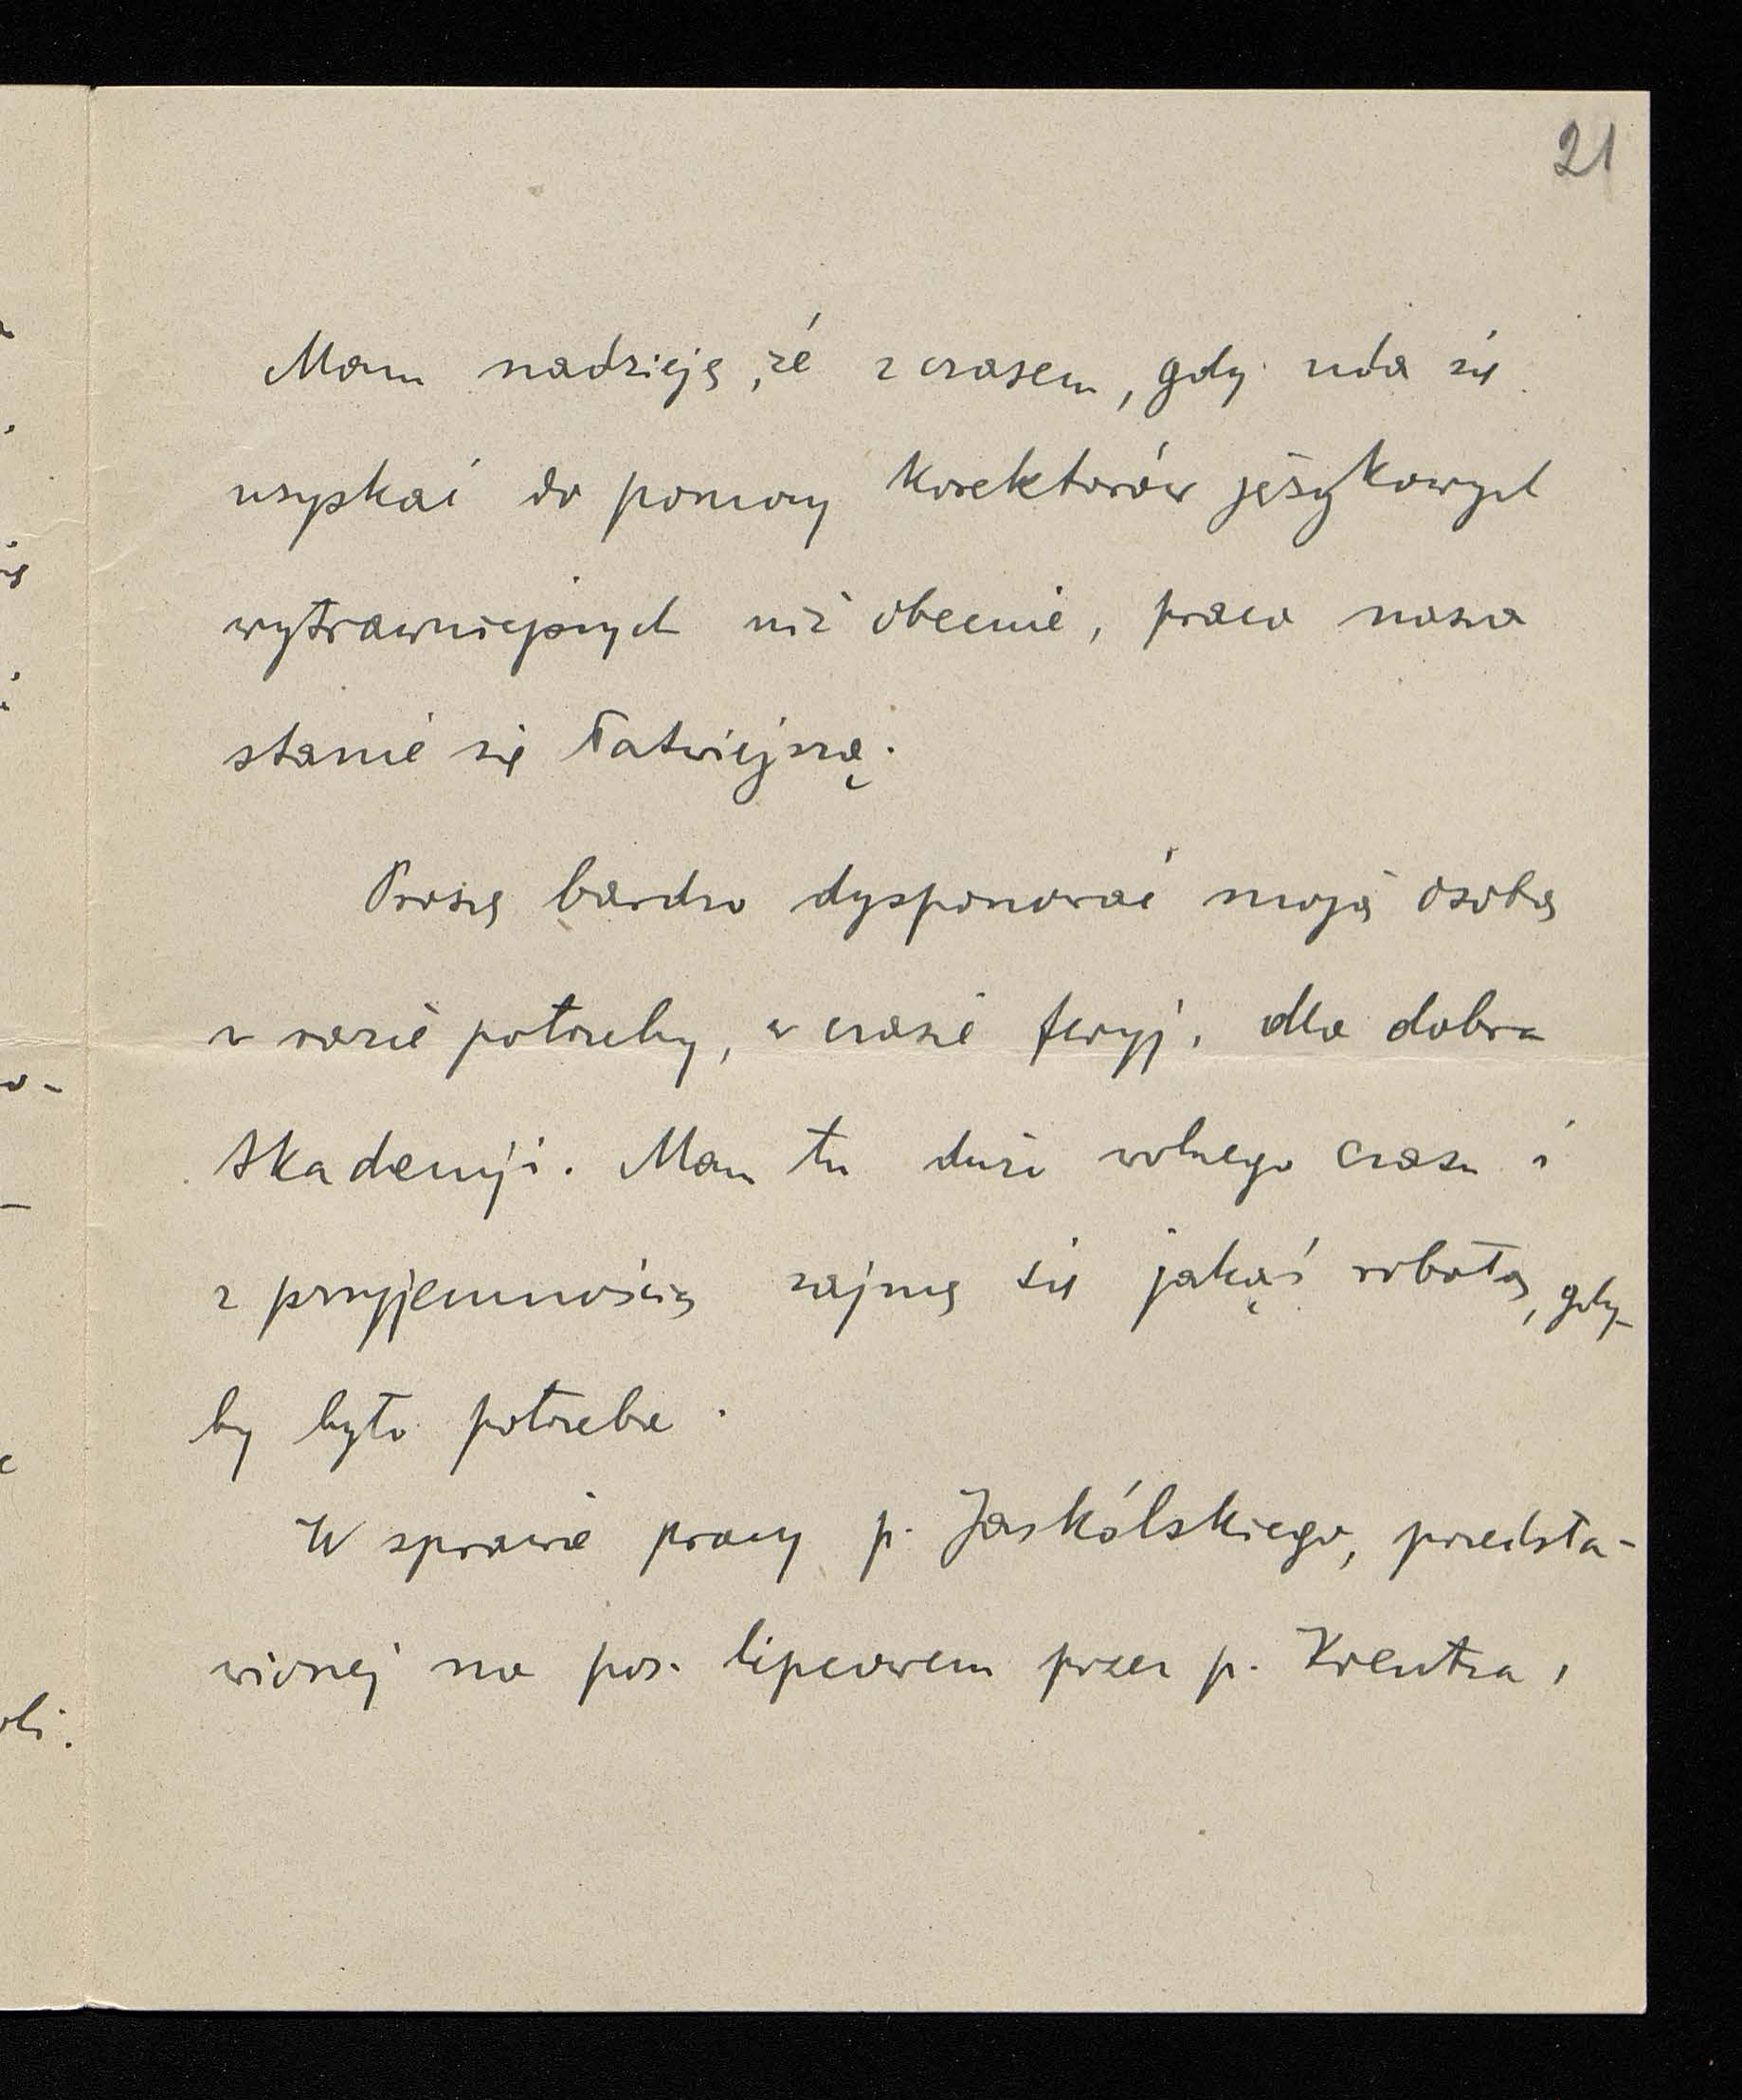 21
Mam nadzieję, że z czasem, gdy uda się
uzyskać do pomocy korektorów językowych
wytrawniejszych niż obecnie, praca nasza
stanie się łatwiejszą.
Proszę bardzo dysponować moją osobą
w razie potrzeby, w czasie feryj, dla dobra
Akademji. Mam tu dużo wolnego czasu i
z przyjemnością zajmę się jakąś robotą, gdy-
by było potrzeba.
W sprawie pracy p. Jaskólskiego, przedsta-
wionej na pos. lipcowem przez p. Kreutza,